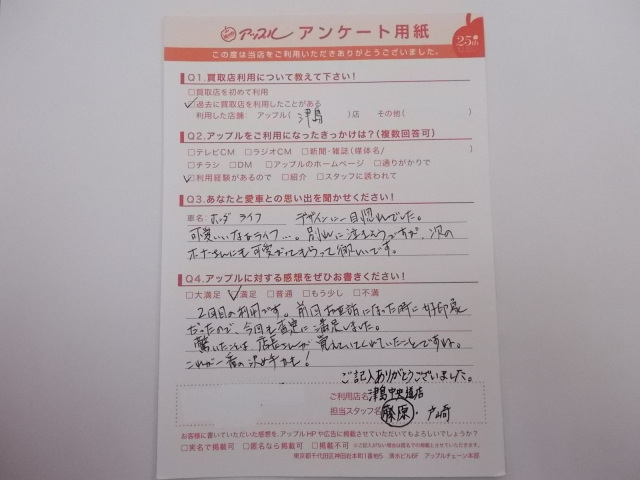 アップル アンケート用紙
25th
この度は当店をご利用いただきありがとうございました。
Q1.買取店利用について教えて下さい!
□買取店を初めて利用
☑過去に買取店を利用したことがある
利用した店舗: アップル( 津島 )店 その他( )
Q2.アップルをご利用になったきっかけは?(複数回答可)
□テレビCM □ラジオCM □新聞・雑誌(媒体名/ )
□チラシ □DM □アップルのホームページ □通りがかりで
☑利用経験があるので □紹介 □スタッフに誘われて
Q3.あなたと愛車との思い出を聞かせください!
車名: ホンダ ライフ デザインに一目惚れでした。
可愛い 別れに 次の
オーナーさんにも可愛がってもらって欲しいです。
Q4.アップルに対する感想をぜひお書きください!
□大満足 ☑満足 □普通 □もう少し □不満
2回目の利用です。前回お世話になった時に好印象
だったので、今回も査定に満足しました。
驚いたことは店長さんが覚えていてくれていたことですね。
これが一番の決め手かも!
ご記入ありがとうございました。
ご利用店名 津島中央道店
担当スタッフ名 藤原・戸崎
お客様に書いていただいた感想を、アップルHPや広告に掲載させていただいてもよろしいでしょうか?
□実名で掲載可 □匿名なら掲載可 □掲載不可 (※ご記入がない場合は匿名での掲載とさせていただきます。)
東京都千代田区神田岩本町1番地5 清水ビル6F アップルチェーン本部